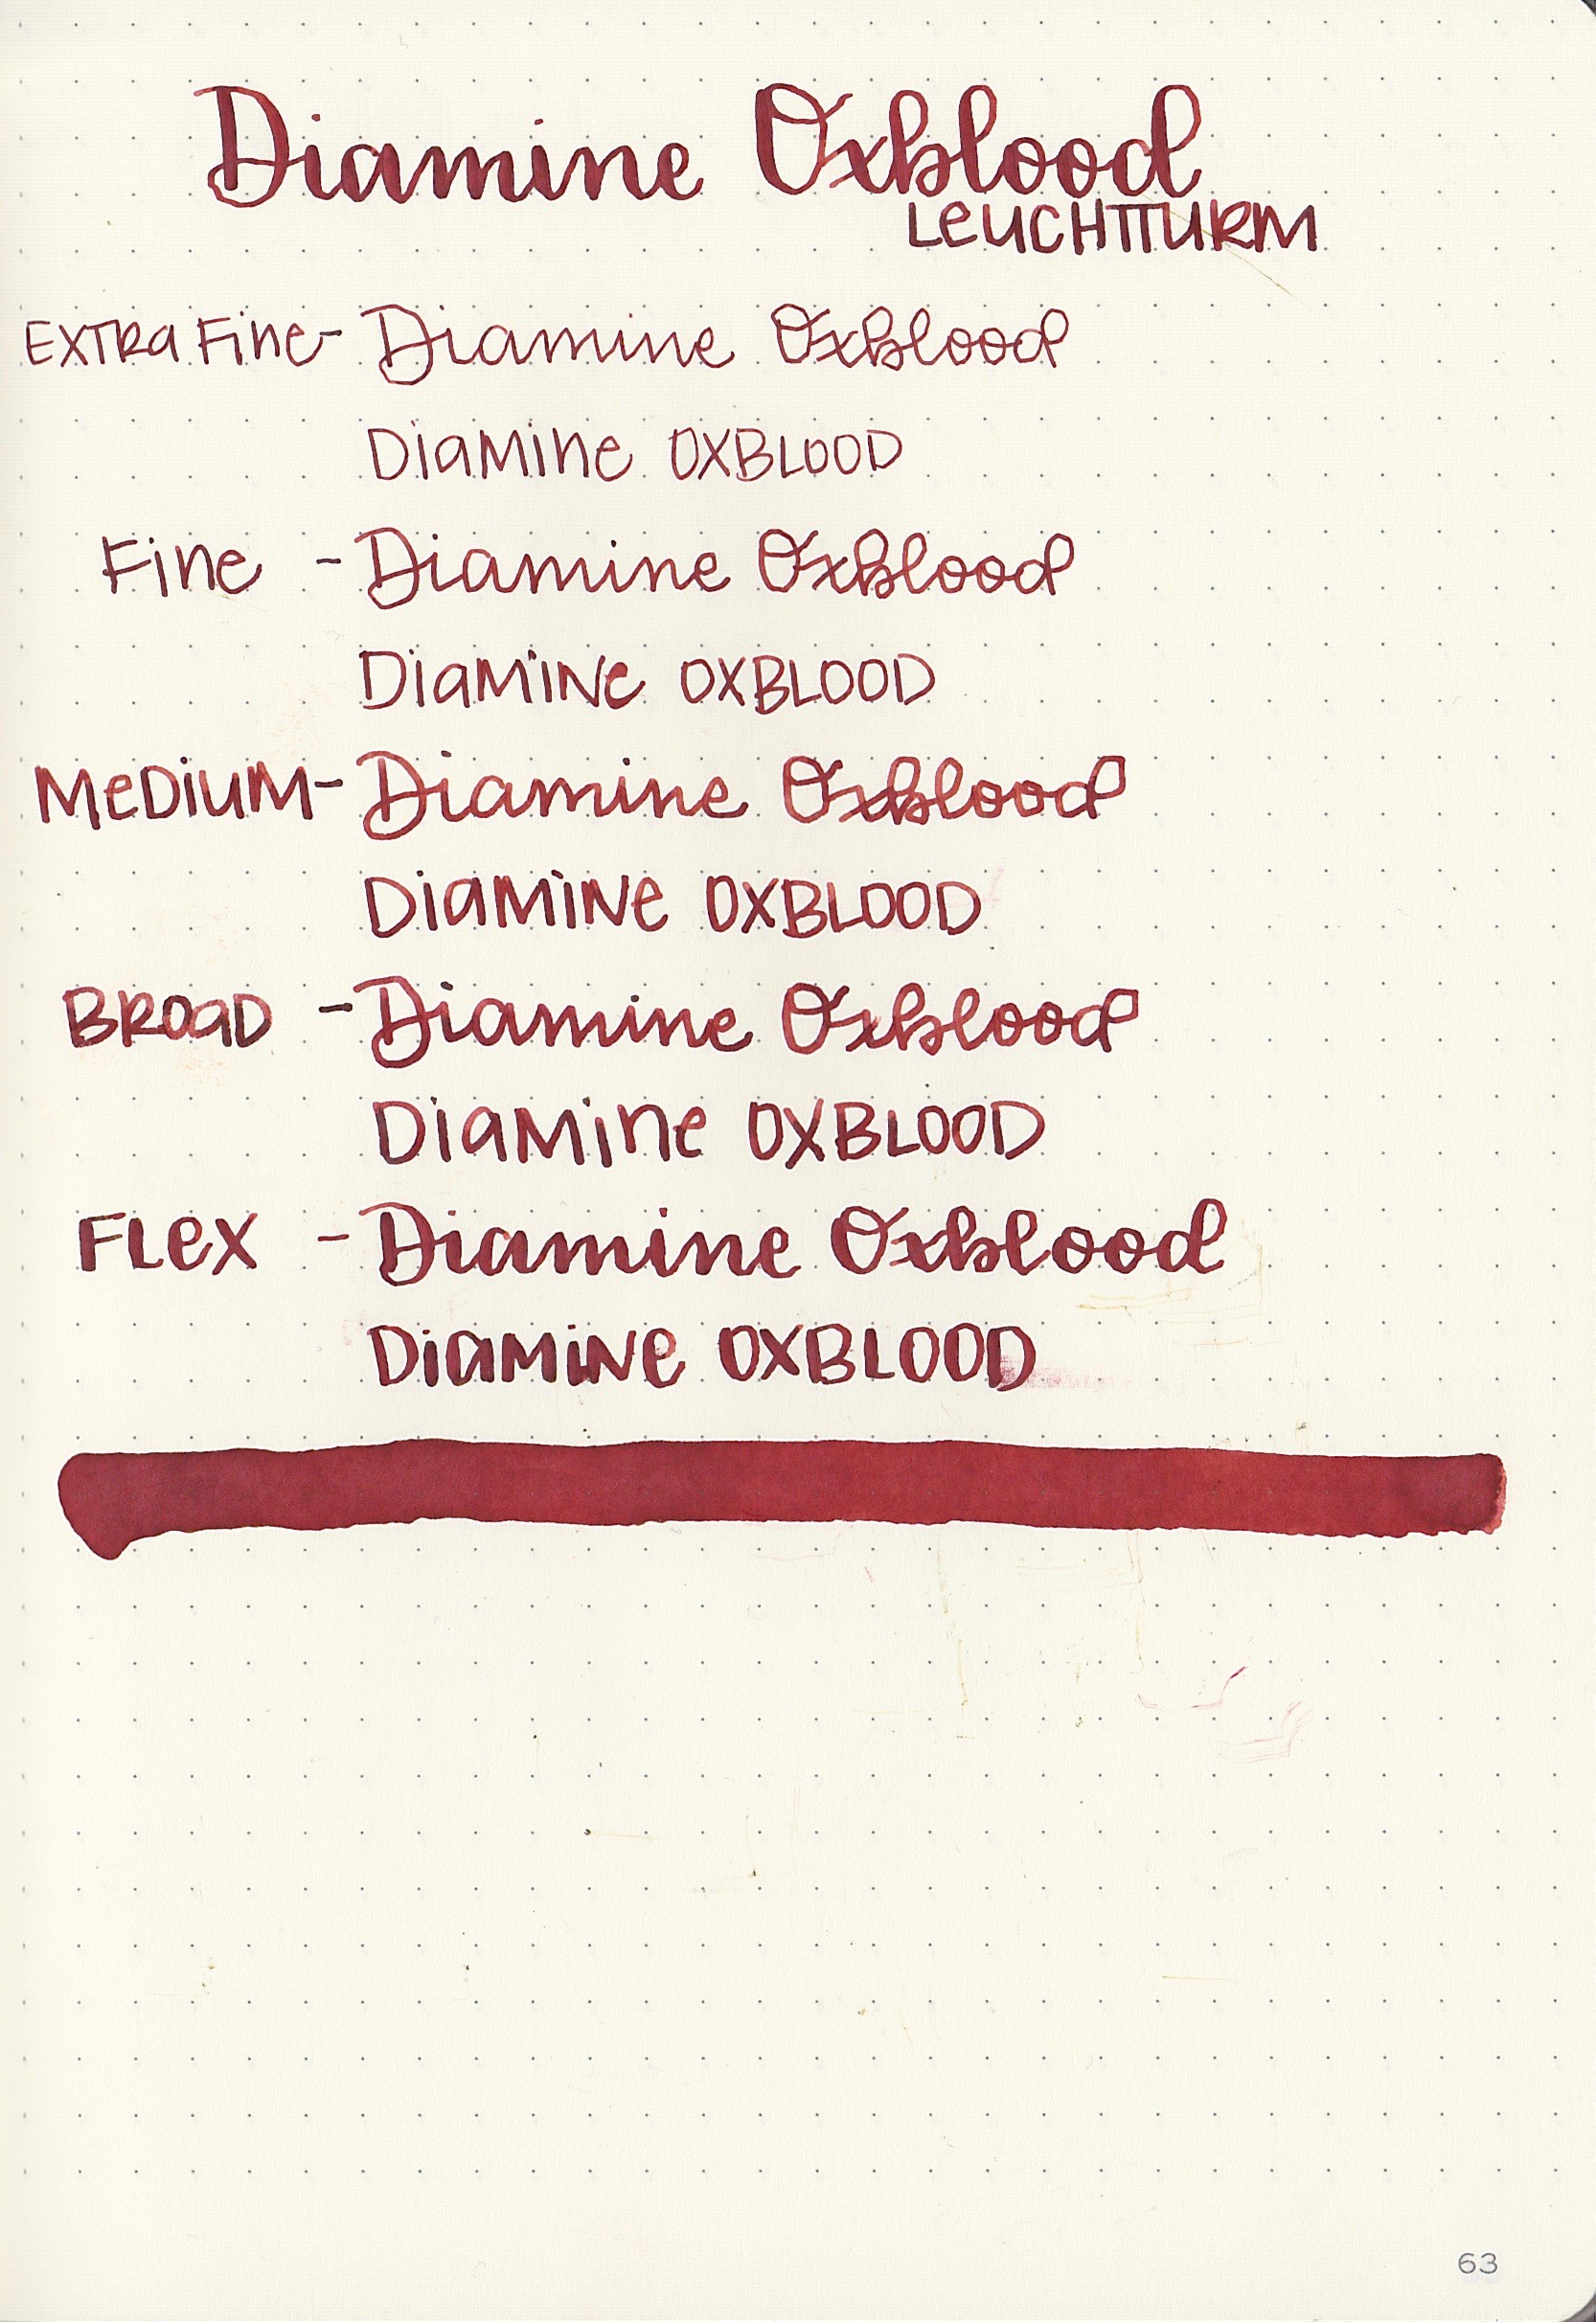 Diamine Oxblood
LEUCHTTURM
EXTRA Fine - Diamine Oxblood
DiaMine OXBLOOD
Fine - Diamine Oxblood
DiaMiNe OXBLOOD
MeDiUM - Diamine Oxblood
DiaMiNe OXBLOOD
BROaD - Diamine Oxblood
DiaMine OXBLOOD
FLeX - Diamine Oxblood
DiaMiNe OXBLOOD
63